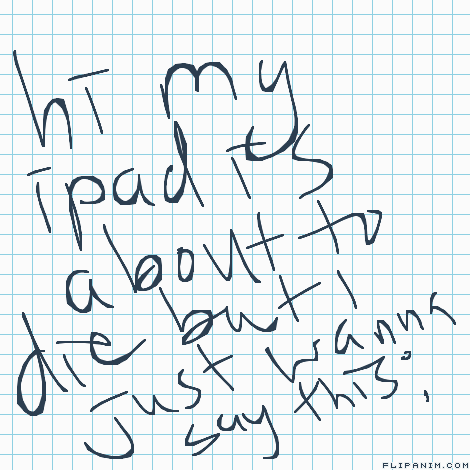 hi my
ipad its
about to
die but I
just wanna
say this:
FLIPANIM.COM